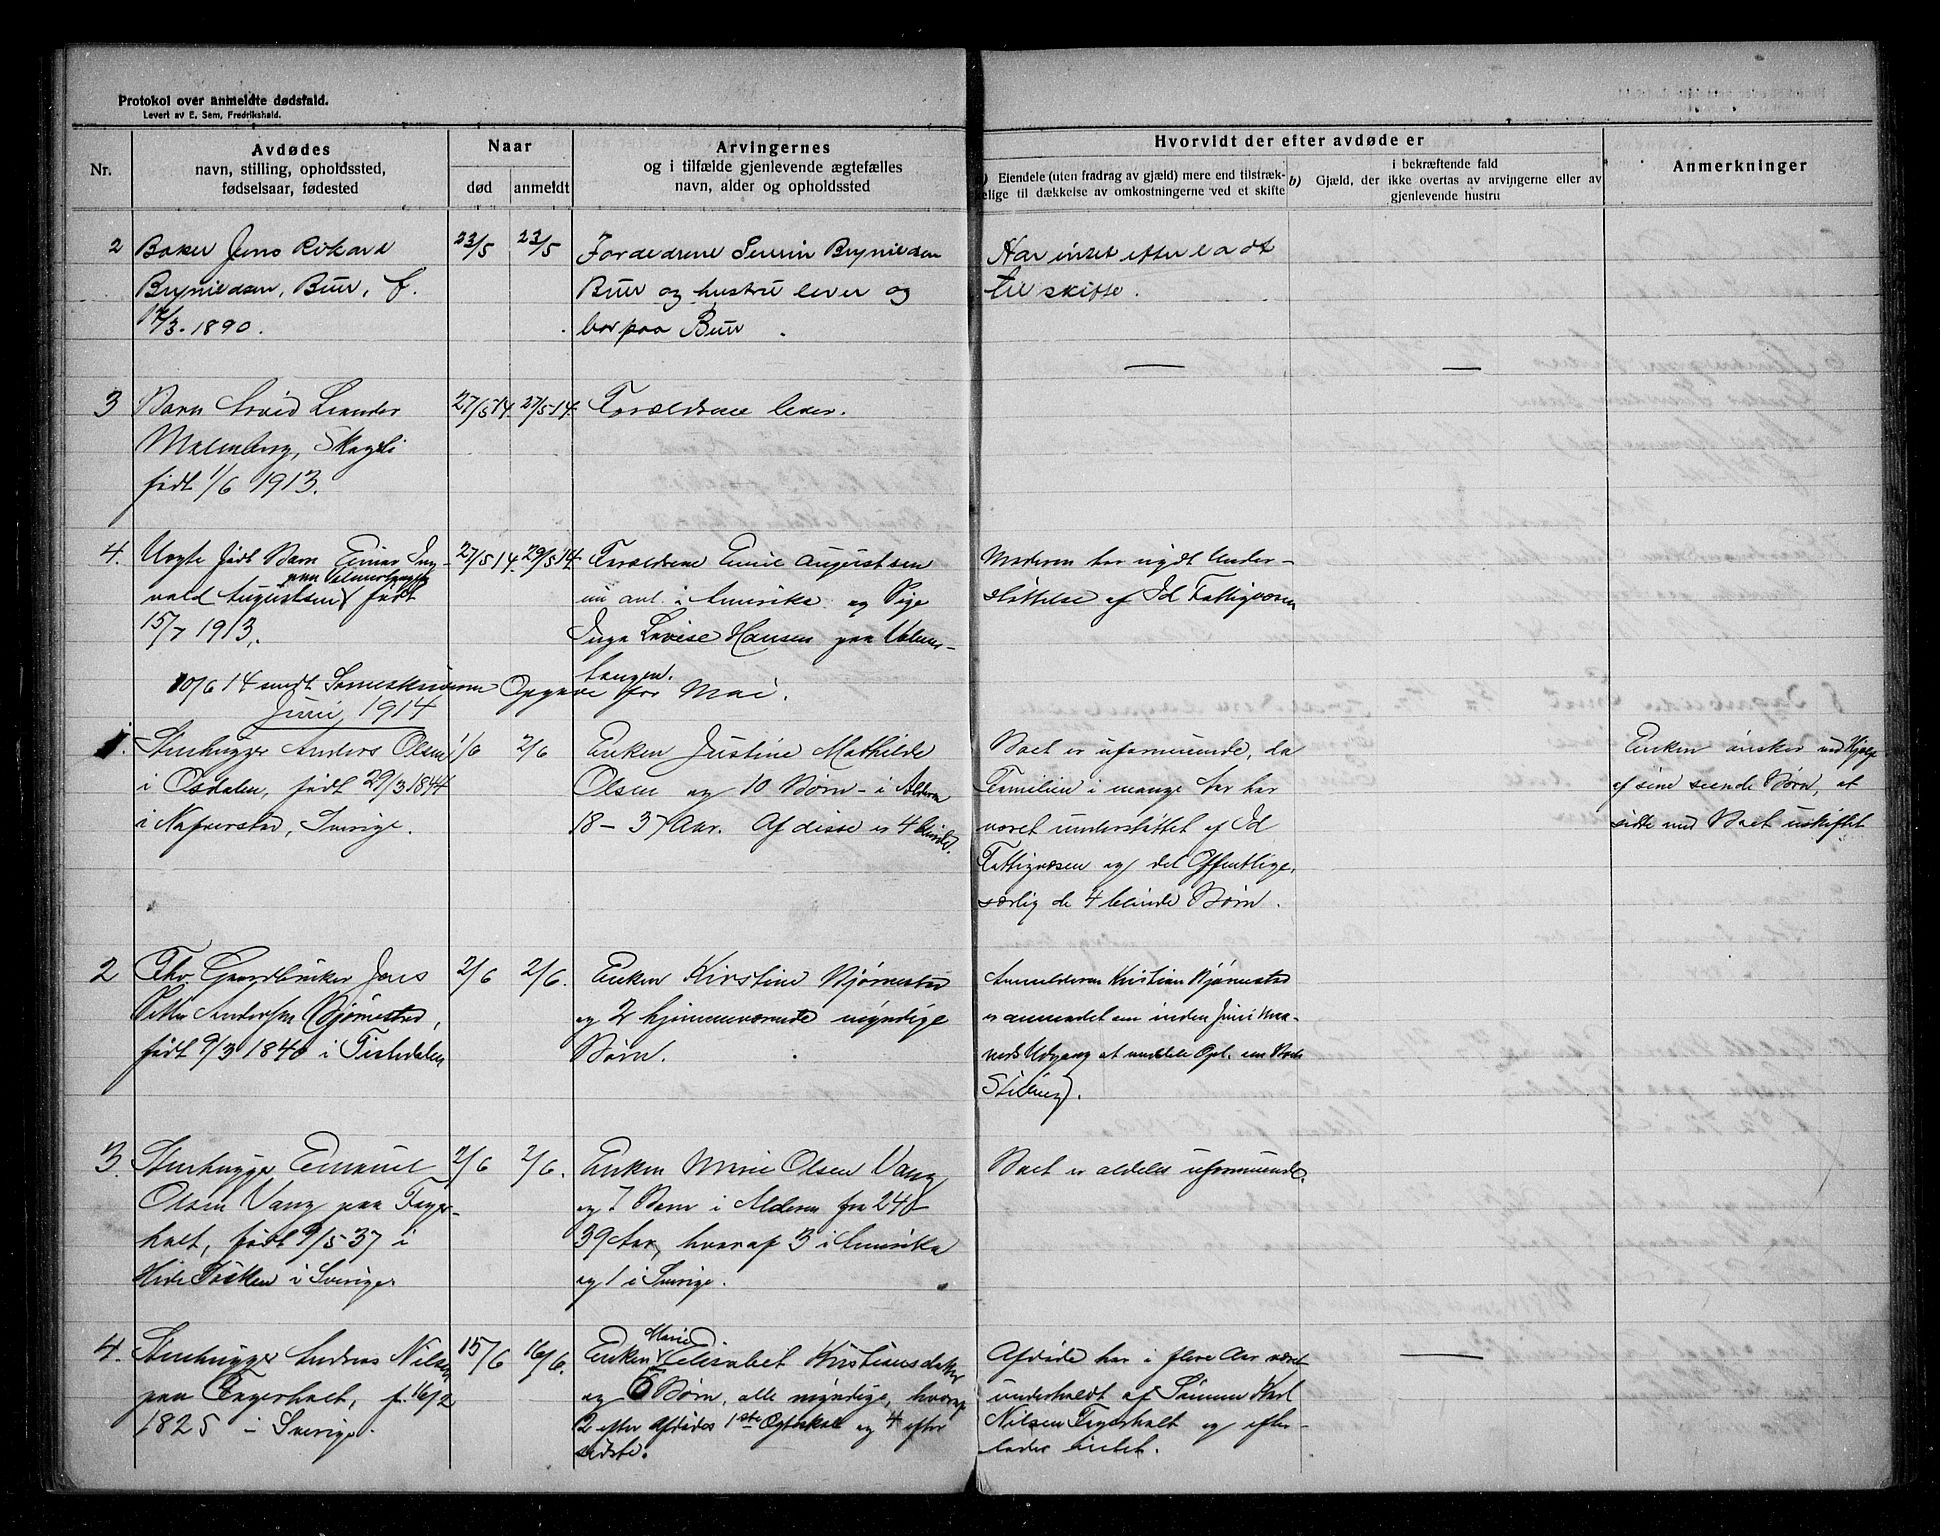 Protokol over anmeldte dødsfald.
Levert av E. Sem, Fredrikshald.
Nr.
Avdødes
navn, stilling, opholdssted,
fødselsaar, fødested
Naar
død
anmeldt
Arvingernes
og i tilfælde gjenlevende ægtefælles
navn, alder og opholdssted
Hvorvidt der efter avdøde er
Eiendele (uten fradrag av gjæld) mere end tilstræk-
kelige til dækkelse av omkostningerne ved et skifte
b)
i bekræftende fald
Gjæld, der ikke overtas av arvingerne eller av
gjenlevende hustru
Anmerkninger
2
Baker Jens Rikard
Brynildsen, Buer, f.
/3. 1890.
23/5
23/5
Brynildsen
Buer og hustru lever og
bor paa Buer
Har intet efterladt
til skifte.
—
—
3
Barn Arvid Leander
Malmberg,
født 1/6 1913.
27/5 14.
27/5 14.
Forældrene lever.
4.
Uægte født Barn Einar Ing-
vald Augustsen født
15/7 1913.
27/5 14.
29/5 14
Forældrene Emil Augustsen
nu ant. i Amerika og Pige
Inga Lovise Hansen paa
Moderen har nydt Under-
støttelse af Id Fattigvæsen
10/6 14 sendt Sorenskriveren Opgave for Mai.
Juni 1914
1.
Stenhugger Anders Olsen
i Osdalen, født 29/3 1844
i Naverstad, Sverige.
1/6
2/6
Enken Justine Mathilde
Olsen og 10 Børn - i Alderen
18 - 37 Aar. Af disse er 4 blinde.
Boet er uformuende, da
Familien i mange Aar har
været understøttet af Id
Fattigvæsen og det Offentlige,
særlig de 4 blinde Børn.
Enken ønsker ved Hjælp
af sine seende Børn, at
sidde med Boet uskiftet
2
Fhv. Gaardbruker Jens
Petter Andersen Bjørnestad,
født 9/3 1840 i Tistedalen
2/6
2/6.
Enken Kirstine Bjørnestad
og 2 hjemmeværende myndige
Børn.
Anmelderen Kristian Bjørnestad
er anmodet om inden Juni Maa-
neds Udgang at meddele Opl. om Boets
Stilling.
3
Stenhugger Emanuel
Olsen Vang paa Fager-
holt, født 9/5 37 i
i Sverige.
2/6
2/6.
Enken Marie Olsen Vang
og 7 Barn i Alderen fra 24 -
39 Aar, hvoraf 3 i Amerika
og 1 i Sverige.
Boet er aldeles uformuende.
4.
Stenhugger Andreas Nilsen
paa Fagerholt, f. 16/2
1825 i Sverige.
15/6
16/6.
Marie
Enken Elisabet Kristiansdatter
og 6 Børn, alle myndige, hvoraf
2 efter Afdødes 1ste Egteskab og 4 efter
sidste.
Afdøde har i flere Aar været
underholdt af Sønnen Karl
Nilsen Fagerholt og efter-
lader intet.
—